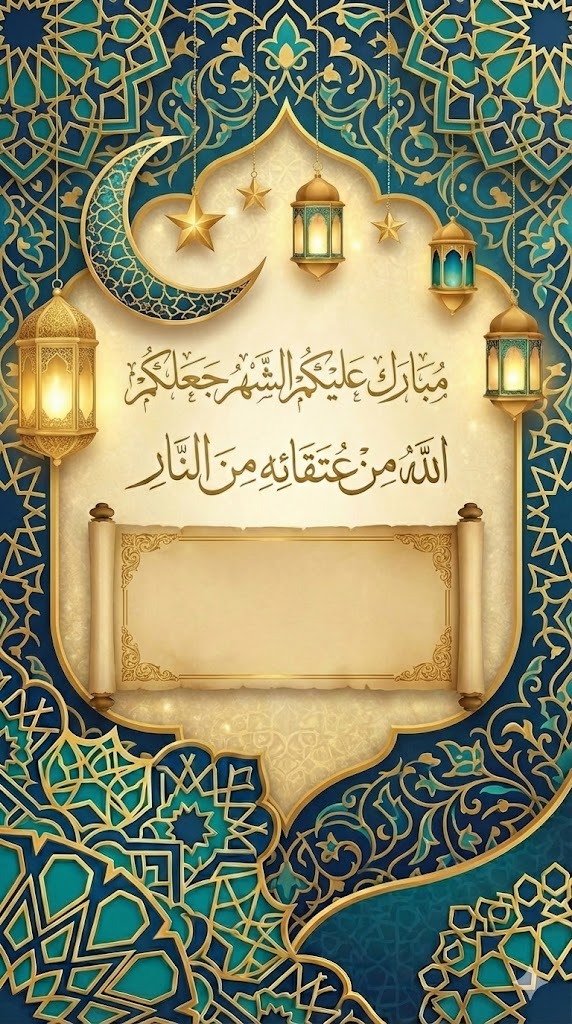 مُبَارَك عَلَيكُم الشَّهرُ جَعَلَكُم
اللَّهُ مِن عُتَقَائِهِ مِنَ النَّارِ